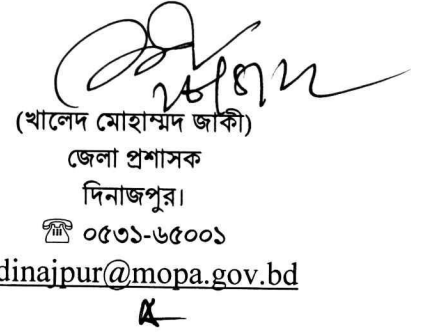 (খালেদ মোহাম্মদ জাকী)
জেলা প্রশাসক
দিনাজপুর।
☏ ০৫৩১-৬৫০০১
dinajpur@mopa.gov.bd